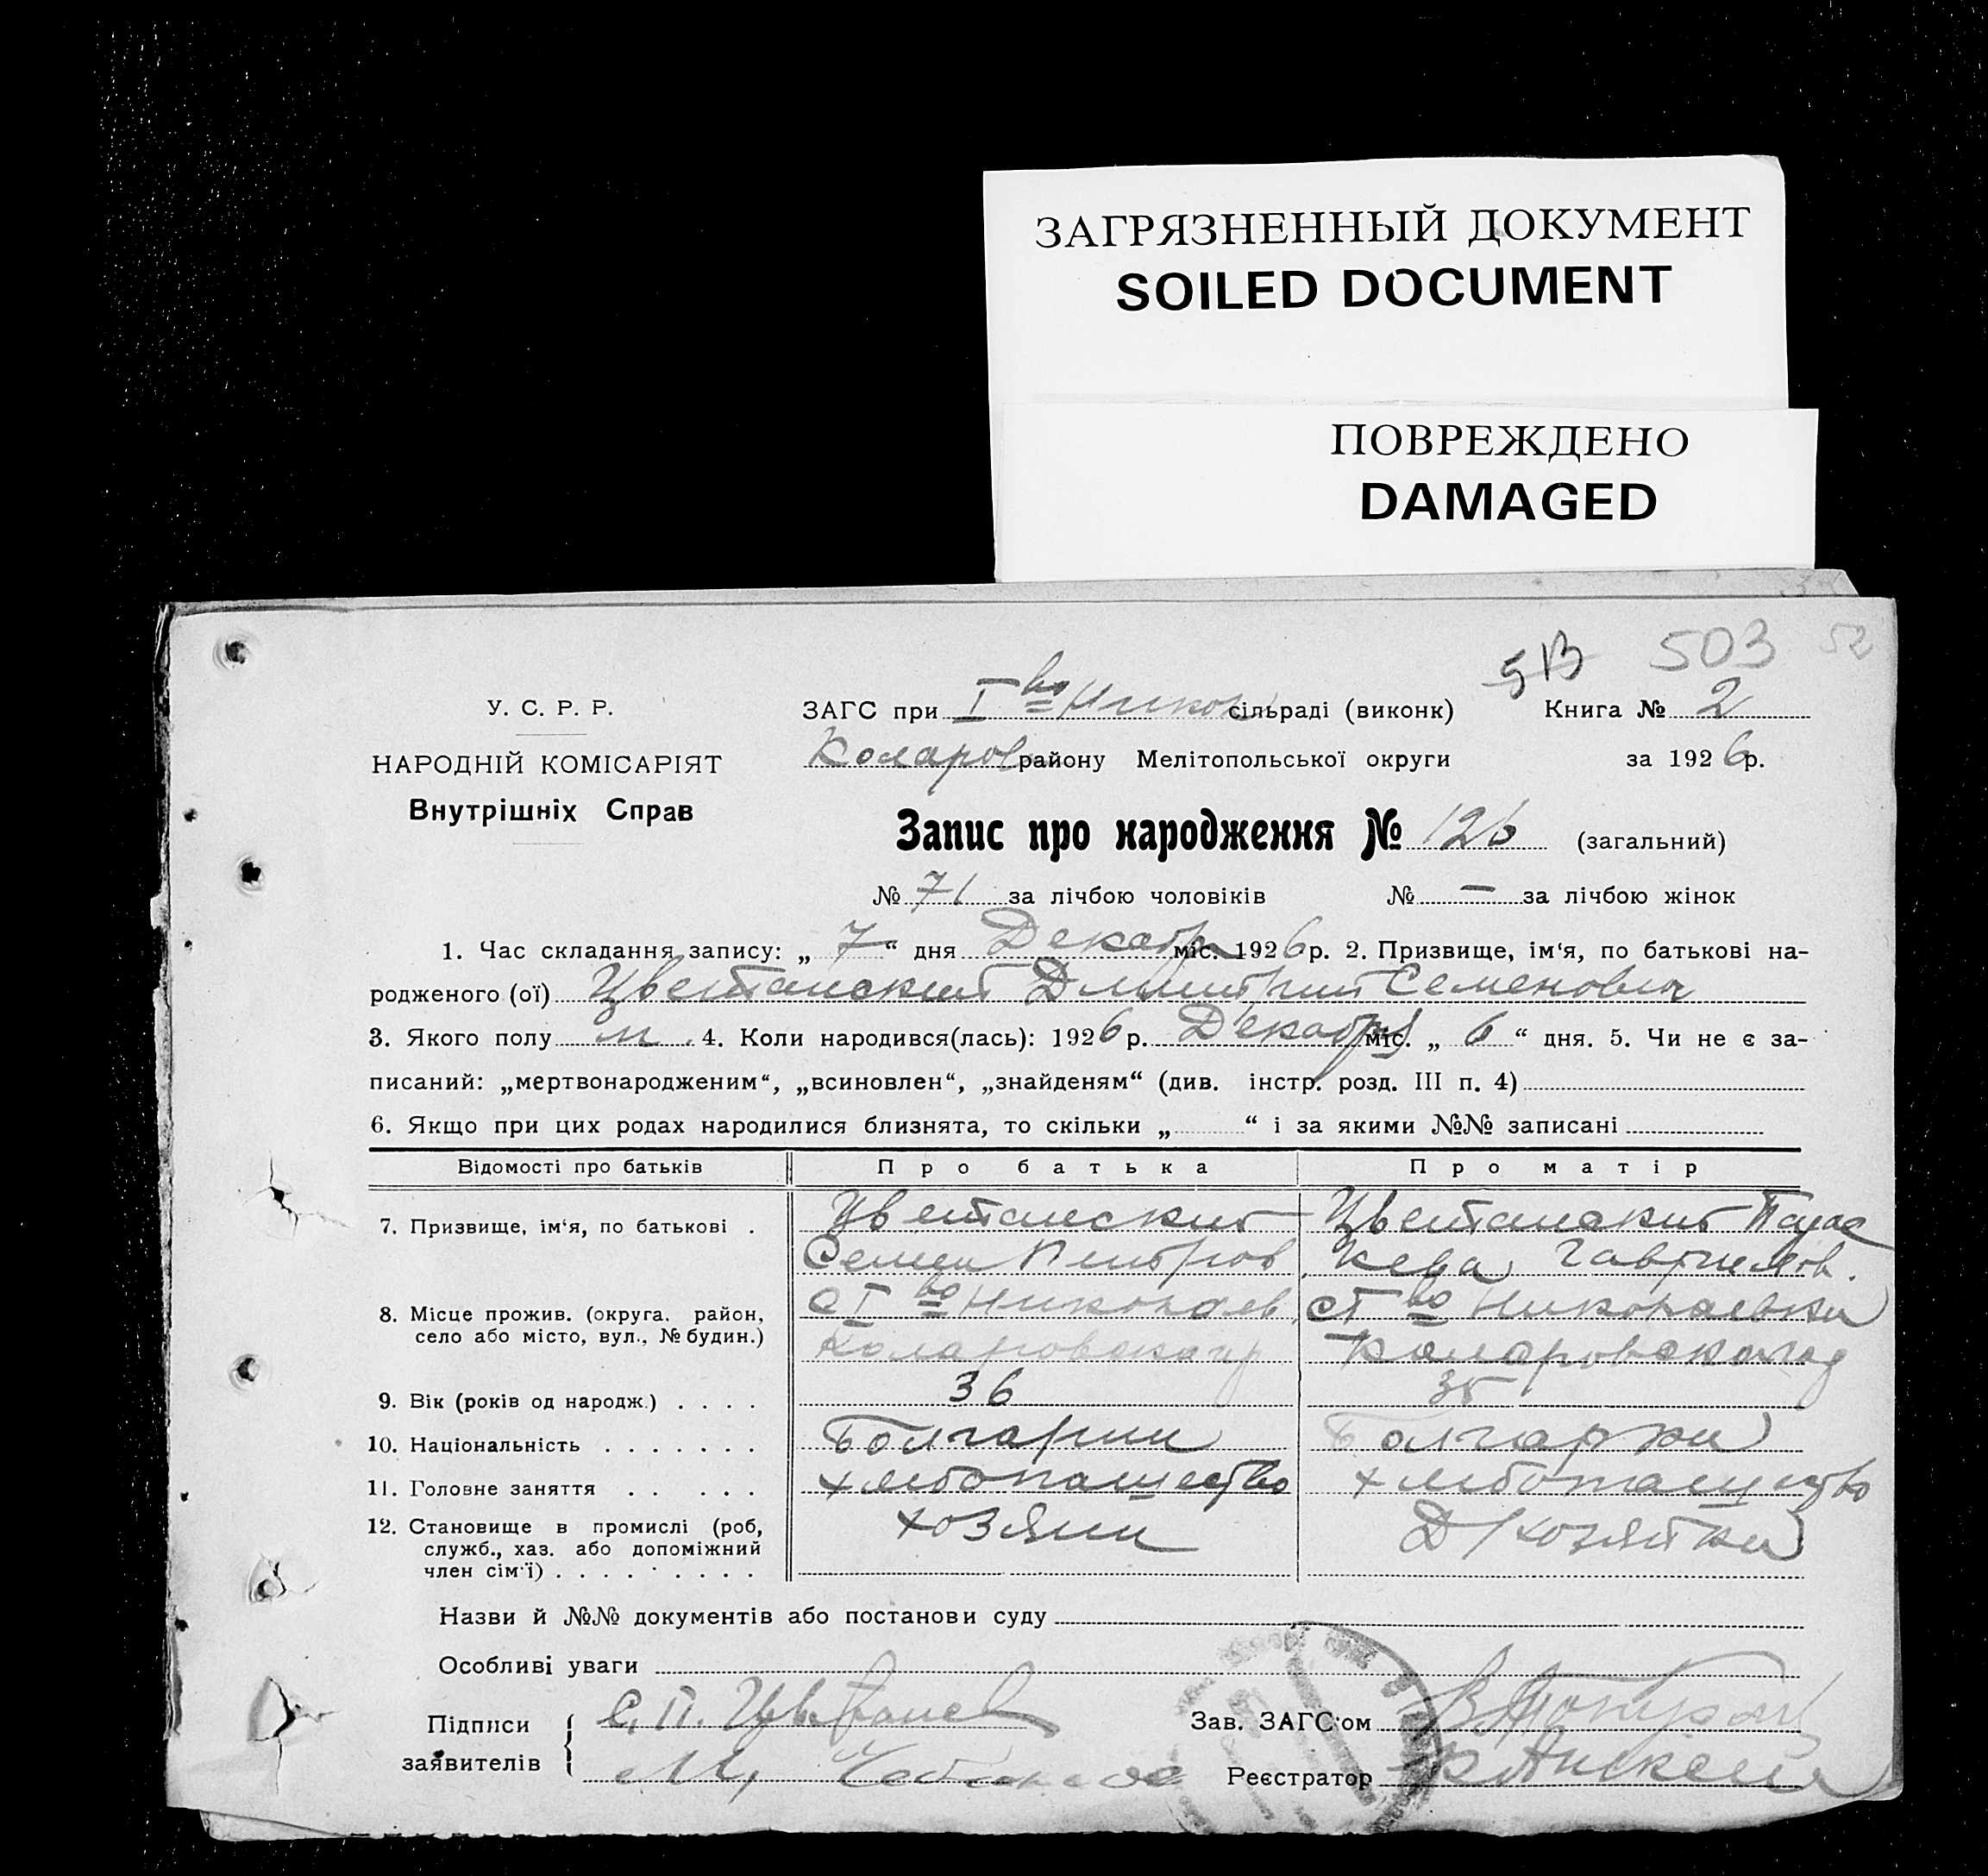 ЗАГРЯЗНЕННЫЙ ДОКУМЕНТ
SOILED DOCUMENT
ПОВРЕЖДЕНО
DAMAGED
503 52
У. С. Р. Р.
ЗАГС при I во Никол сільраді (виконк) Книга № 2
НАРОДНІЙ КОМІСАРІЯТ
Коларов району Мелітопольської округи за 1926р.
Внутрішніх Справ
Запис про народження № 126 (загальний)
№ 71 за лічбою чоловіків № — за лічбою жінок
1. Час складання запису: „ 7 “ дня Декабр міс. 1926р. 2. Призвище, ім‘я, по батькові на-
родженого (ої) Цветанский Дмитрий Семенович
3. Якого полу м. 4. Коли народився(лась): 1926р. Декабря міс. „ 6 “ дня. 5. Чи не є за-
писаний: „мертвонародженим“, „всиновлен“, „знайденям“ (див. інстр. розд. III п. 4)
6. Якщо при цих родах народилися близнята, то скільки „ “ і за якими №№ записані
Відомості про батьків Про батька Про матір
7. Призвище, ім‘я, по батькові . Цветанский Цветанский Парас
Семен Петров кева Гаврилов.
8. Місце прожив. (округа. район, с I во Николаев. с I во Николаевка
село або місто, вул., № будин.) Коларовского р Коларовского
9. Вік (років од народж.) . . . . 36 35
10. Національність . . . . . . . Болгарин Болгарка
11. Головне заняття . . . . . хлебопашество хлебопашество
12. Становище в промислі (роб, хозяин Д/хозяйка
служб., хаз. або допоміжний
член сім‘ї) . . . . . . . . .
Назви й №№ документів або постанови суду
Особливі уваги
Підписи С. П. Цветанск Зав. ЗАГС‘ом
заявителів М. Реєстратор